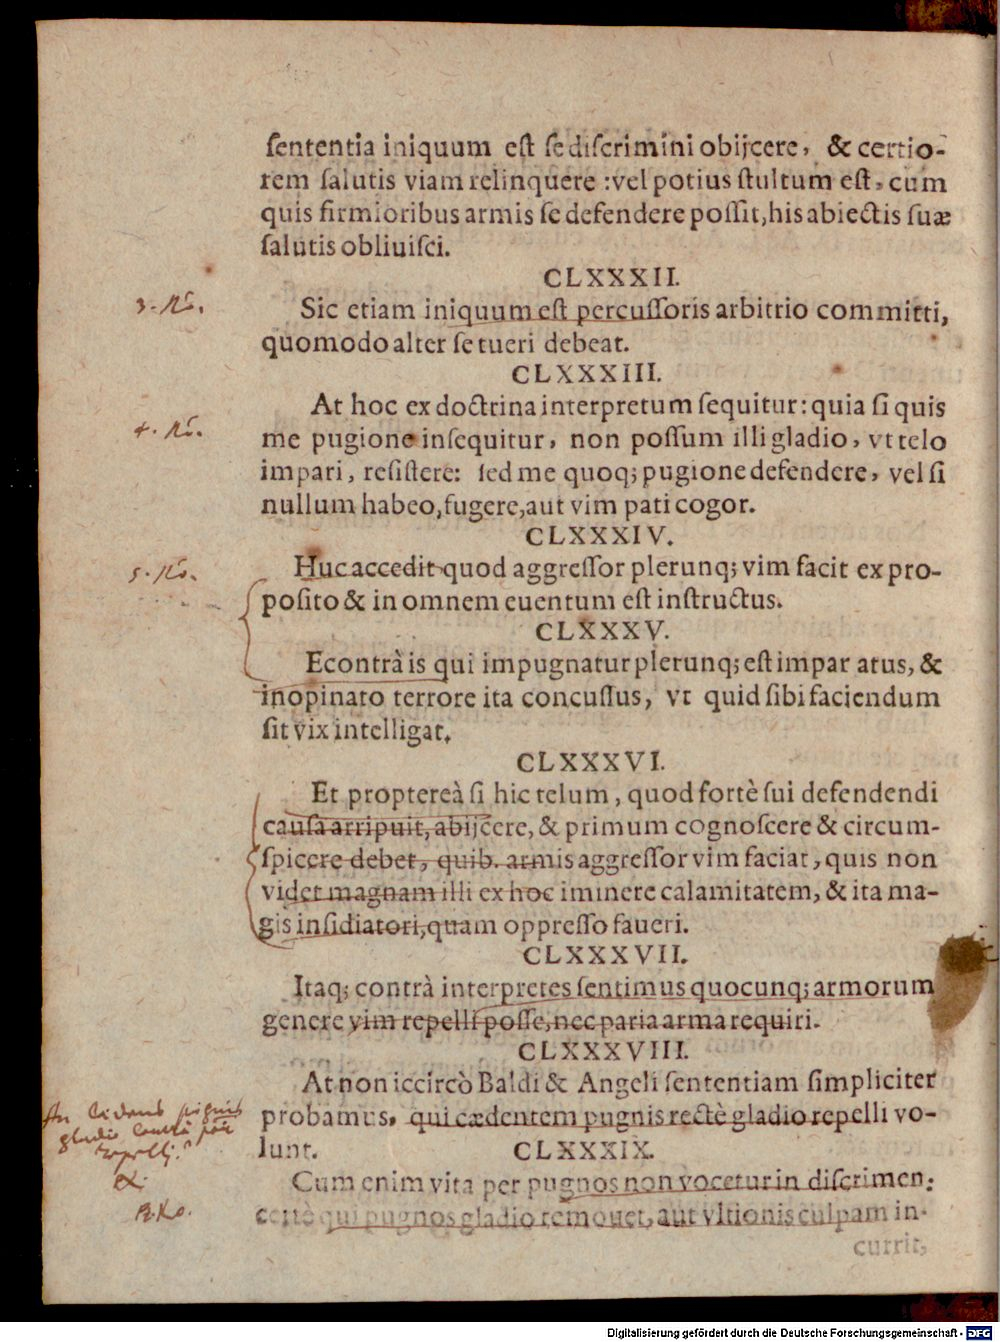 ſententia iniquum eſt ſe diſcrimini obijcere, & certio-
rem ſalutis viam relinquere: vel potius ſtultum eſt, cum
quis firmioribus armis ſe defendere poſſit, his abiectis ſuæ
ſalutis obliuiſci.
CLXXXII.
3. Ro.
Sic etiam iniquum eſt percuſſoris arbitrio committi,
quomodo alter ſe tueri debeat.
CLXXXIII.
At hoc ex doctrina interpretum ſequitur: quia ſi quis
4. Ro.
me pugione inſequitur, non poſſum illi gladio, vt telo
impari, reſiſtere: ſed me quoq; pugione defendere, vel ſi
nullum habeo, fugere, aut vim pati cogor.
CLXXXIV.
5. Ro.
Huc accedit quod aggreſſor plerunq; vim facit ex pro-
poſito & in omnem euentum eſt inſtructus.
CLXXXV.
Econtrà is qui impugnatur plerunq; eſt imparatus, &
inopinato terrore ita concuſſus, vt quid ſibi faciendum
ſit vix intelligat.
CLXXXVI.
Et proptereà ſi hic telum, quod fortè ſui defendendi
cauſa arripuit, abijcere, & primum cognoſcere & circum-
ſpicere debet, quib. armis aggreſſor vim faciat, quis non
videt magnam illi ex hoc iminere calamitatem, & ita ma-
gis inſidiatori, quam oppreſſo faueri.
CLXXXVII.
Itaq; contrà interpretes ſentimus quocunq; armorum
genere vim repelli poſſe, nec paria arma requiri.
CLXXXVIII.
At non iccircò Baldi & Angeli ſententiam ſimpliciter
probamus, qui cædentem pugnis rectè gladio repelli vo-
lunt.
CLXXXIX.
Cum enim vita per pugnos non vocetur in diſcrimen:
certè qui pugnos gladio remouet, aut vltionis culpam in-
currit,
Digitalisierung gefördert durch die Deutsche Forschungsgemeinschaft - DFG